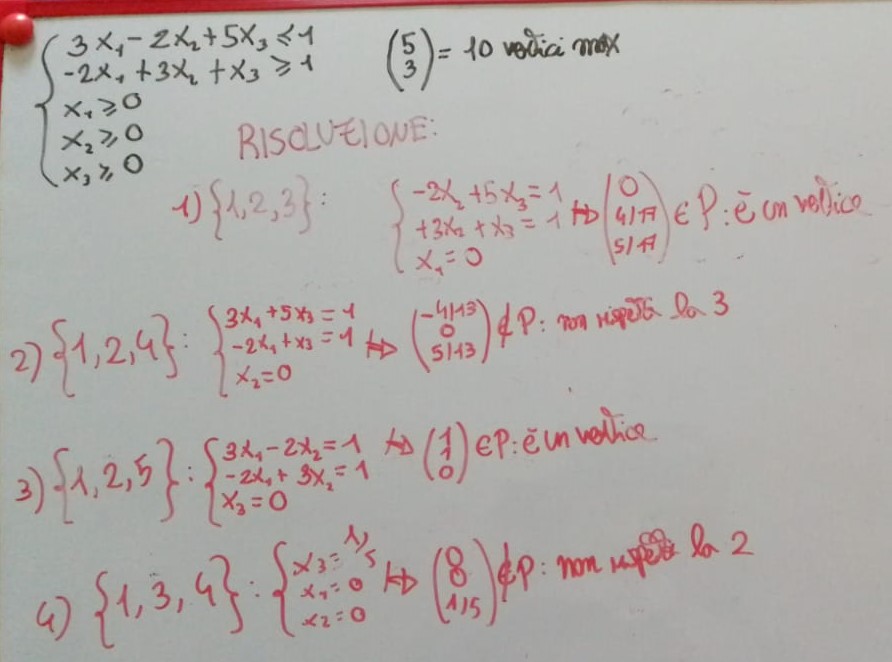 3x₁ - 2x₂ + 5x₃ ≤ 1
(5 3) = 10 vertici max
-2x₁ + 3x₂ + x₃ ≥ 1
x₁ ≥ 0
x₂ ≥ 0
x₃ ≥ 0
RISOLUZIONE:
1) {1,2,3}: { -2x₂ + 5x₃ = 1
+3x₂ + x₃ = 1
x₁ = 0 ↦ (0 4/17 5/17) ∈ P: è un vertice
2) {1,2,4}: { 3x₁ + 5x₃ = 1
-2x₁ + x₃ = 1
x₂ = 0 ↦ (-4/13 0 5/13) ∉ P: non rispetta la 3
3) {1,2,5}: { 3x₁ - 2x₂ = 1
-2x₁ + 3x₂ = 1
x₃ = 0 ↦ (1 1 0) ∈ P: è un vertice
4) {1,3,4}: { x₃ = 1/5
x₁ = 0
x₂ = 0 ↦ (0 0 1/5) ∉ P: non rispetta la 2